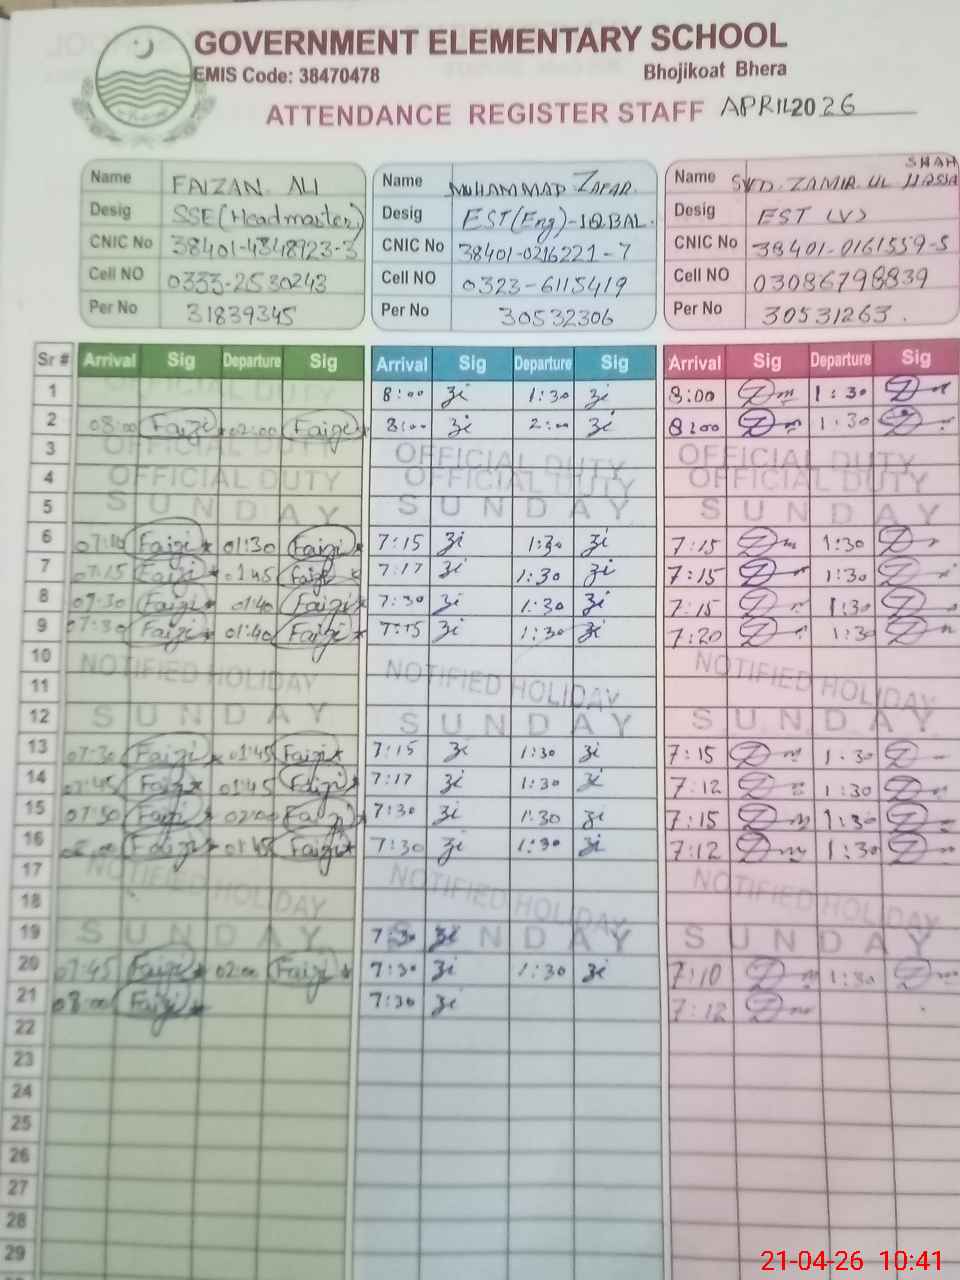 GOVERNMENT ELEMENTARY SCHOOL
EMIS Code: 38470478 Bhojikoat Bhera
ATTENDANCE REGISTER STAFF APRIL 2026
Name FAIZAN ALI Name MUHAMMAD ZAFAR Name SYD. ZAMIR UL SHAH
Desig SSE (Headmaster) Desig EST (Eng) - IQBAL. Desig EST (V)
CNIC No 38401-4348923-3 CNIC No 38401-0216221-7 CNIC No 38401-0161559-5
Cell NO 0333-2530243 Cell NO 0323-6115419 Cell NO 03086798839
Per No 31839345 Per No 30532306 Per No 30531263.
Sr # Arrival Sig Departure Sig Arrival Sig Departure Sig Arrival Sig Departure Sig
1 OFFICIAL DUTY 8:00 zi 1:30 zi 8:00 1:30
2 08:00 Faizi 02:00 Faizi 8:00 zi 2:00 zi 8:00 1:30
3 OFFICIAL DUTY OFFICIAL DUTY OFFICIAL DUTY
4 OFFICIAL DUTY OFFICIAL DUTY OFFICIAL DUTY
5 SUNDAY SUNDAY SUNDAY
6 Faizi 01:30 Faizi 7:15 zi 1:30 zi 7:15 1:30
7 07:15 Faizi 01:45 Faizi 7:17 zi 1:30 zi 7:15 1:30
8 07:30 Faizi 01:40 Faizi 7:30 zi 1:30 zi 7:15 1:30
9 07:30 Faizi 01:40 Faizi 7:15 zi 1:30 zi 7:20 1:30
10 NOTIFIED HOLIDAY NOTIFIED HOLIDAY NOTIFIED HOLIDAY
11
12 SUNDAY SUNDAY SUNDAY
13 07:30 Faizi 01:45 Faizi 7:15 zi 1:30 zi 7:15 1:30
14 07:45 Faizi 01:45 Faizi 7:17 zi 1:30 zi 7:12 1:30
15 07:50 Faizi 02:00 Faizi 7:30 zi 1:30 zi 7:15 1:30
16 Faizi 01:45 Faizi 7:30 zi 1:30 zi 7:12 1:30
17 NOTIFIED HOLIDAY NOTIFIED HOLIDAY NOTIFIED HOLIDAY
18
19 SUNDAY 7:30 zi SUNDAY SUNDAY
20 07:45 Faizi 02:00 Faizi 7:30 zi 1:30 zi 7:10 1:30
21 08:00 Faizi 7:30 zi 7:12
22
23
24
25
26
27
28
29
21-04-26 10:41